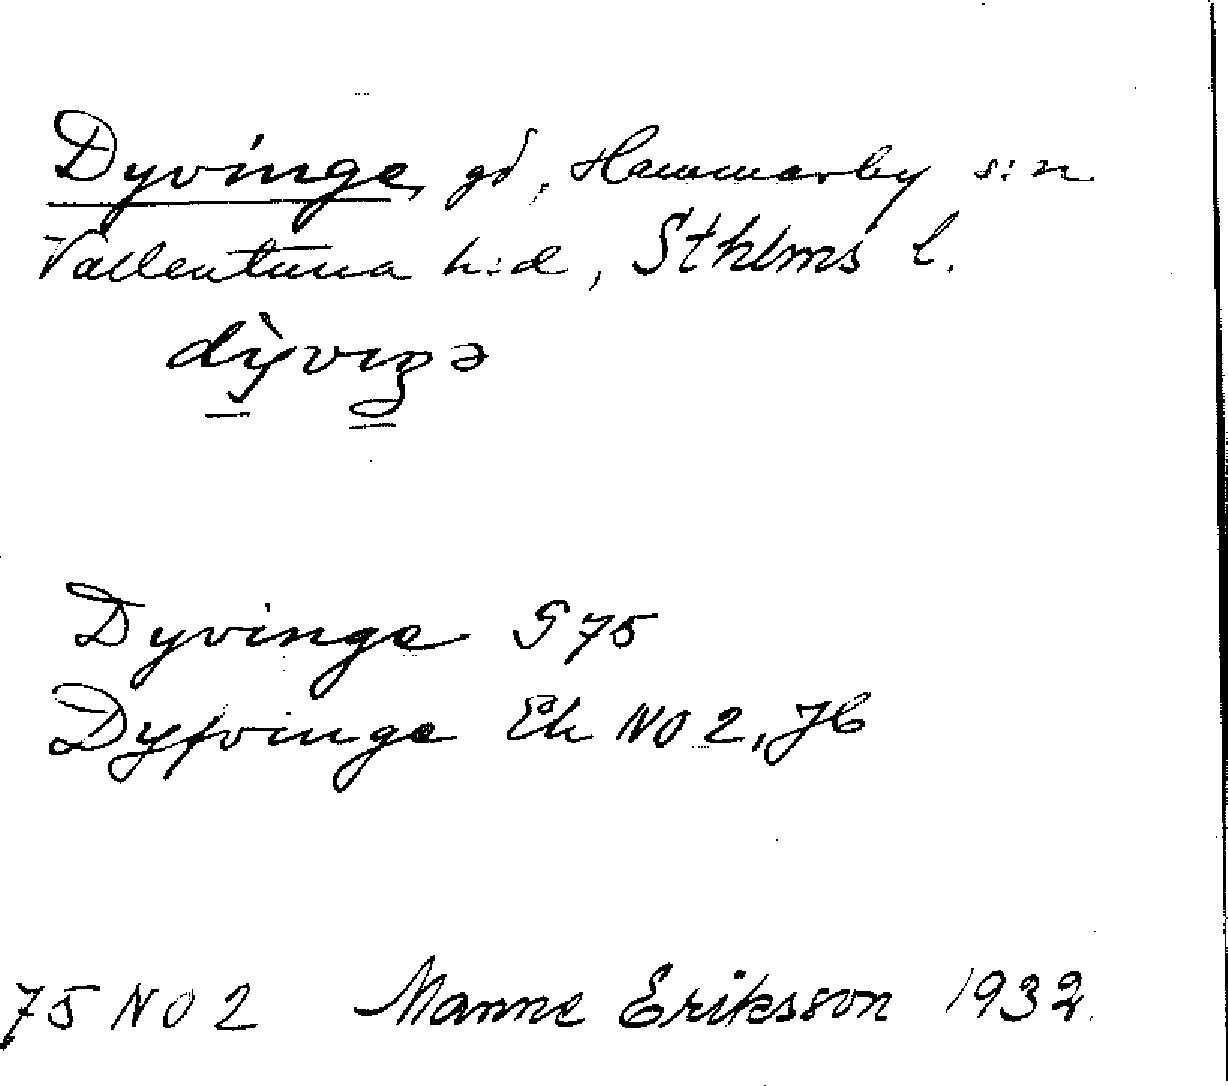 Dyvinge, gd, Hammarby s:n
Vallentuna h:d, Sthlms l.
dỳvıŋə
Dyvinge G75
Dyfvinge Ek NO 2, Jb
75 NO 2 Manne Eriksson 1932.